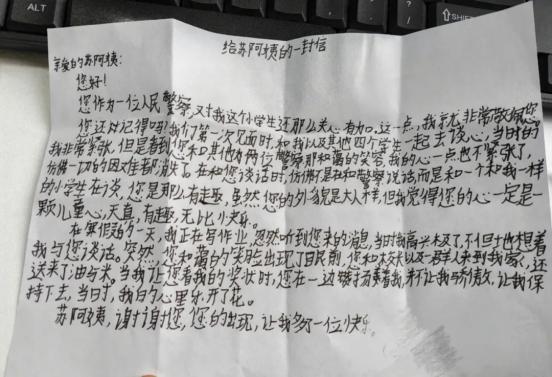 ALT
?
SHIFT
给苏阿姨的一封信
亲爱的苏阿姨:
您好!
您作为一位人民警察,又对我这个小学生还那么关心有加。这一点,我就非常敬佩您
您还计记得吗?我们第一次见面时,和我以及其他四个学生一起去谈心,当时的
我非常紧张,但是看到您和其他两位警察那和蔼的笑容,我的心一点也不紧张了,
仿佛一切的困难都消失了。在和您谈话时,仿佛不是在和警察说话而是和一个和我一样
的小学生在谈,您是那么有趣,虽然您的外貌是大人样,但我觉得您的心一定是一
颗儿童心,天真,有趣,无比快乐。
在寒假的一天,我正在写作业,忽然听到您来的消息,当时我高兴极了,不但士也想着
我与您谈话。突然,您和蔼的笑脸出现了目民前,您和以及一群人来到我家,还
送来了油与米。当我让您看我的奖状时,您在一边夸奖着我,来不让我骄傲,让我保
持下去,当时,我的心里乐开了花。
苏阿姨,谢谢您,您的出现,让我多了一位快乐。